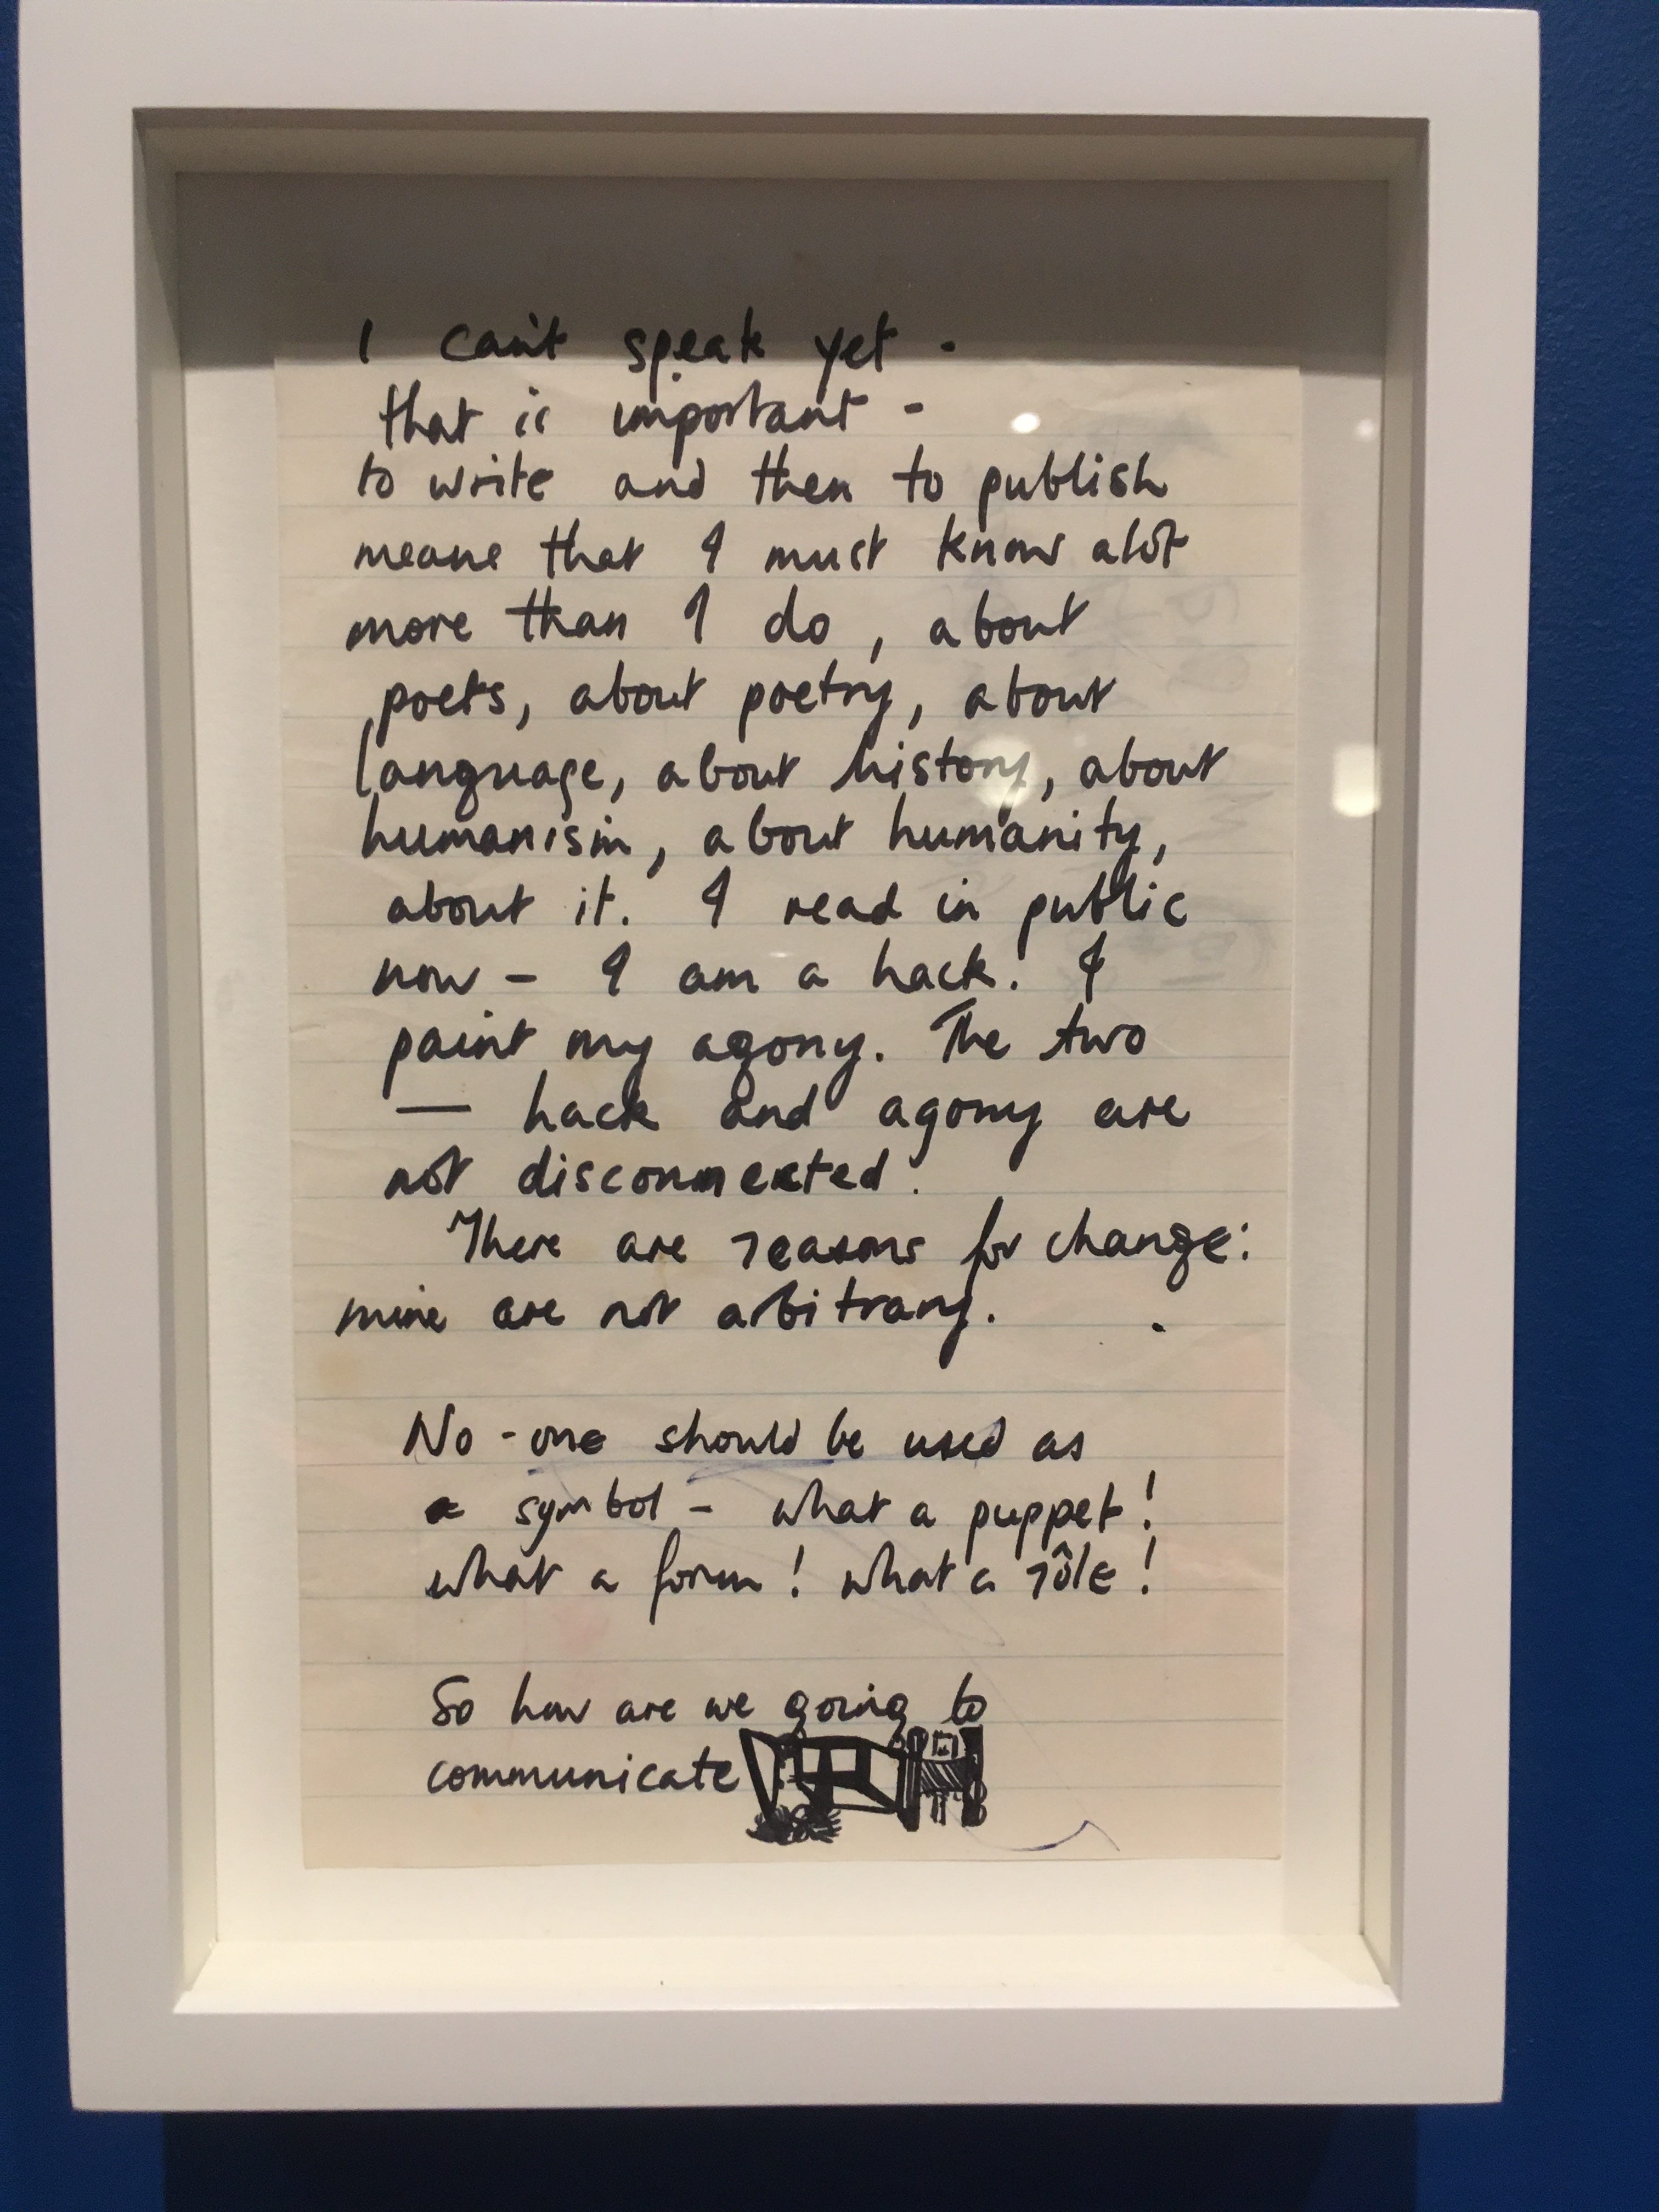 I can't speak yet -
that is important -
to write and then to publish
means that I must know alot
more than I do, about
poets, about poetry, about
language, about history, about
humanism, about humanity,
about it. I read in public
now - I am a hack. I
paint my agony. The two
— hack and agony are
not disconnected.
There are reasons for change:
mine are not arbitrary.
No-one should be used as
a symbol - what a puppet!
what a form! what a rôle!
So how are we going to
communicate